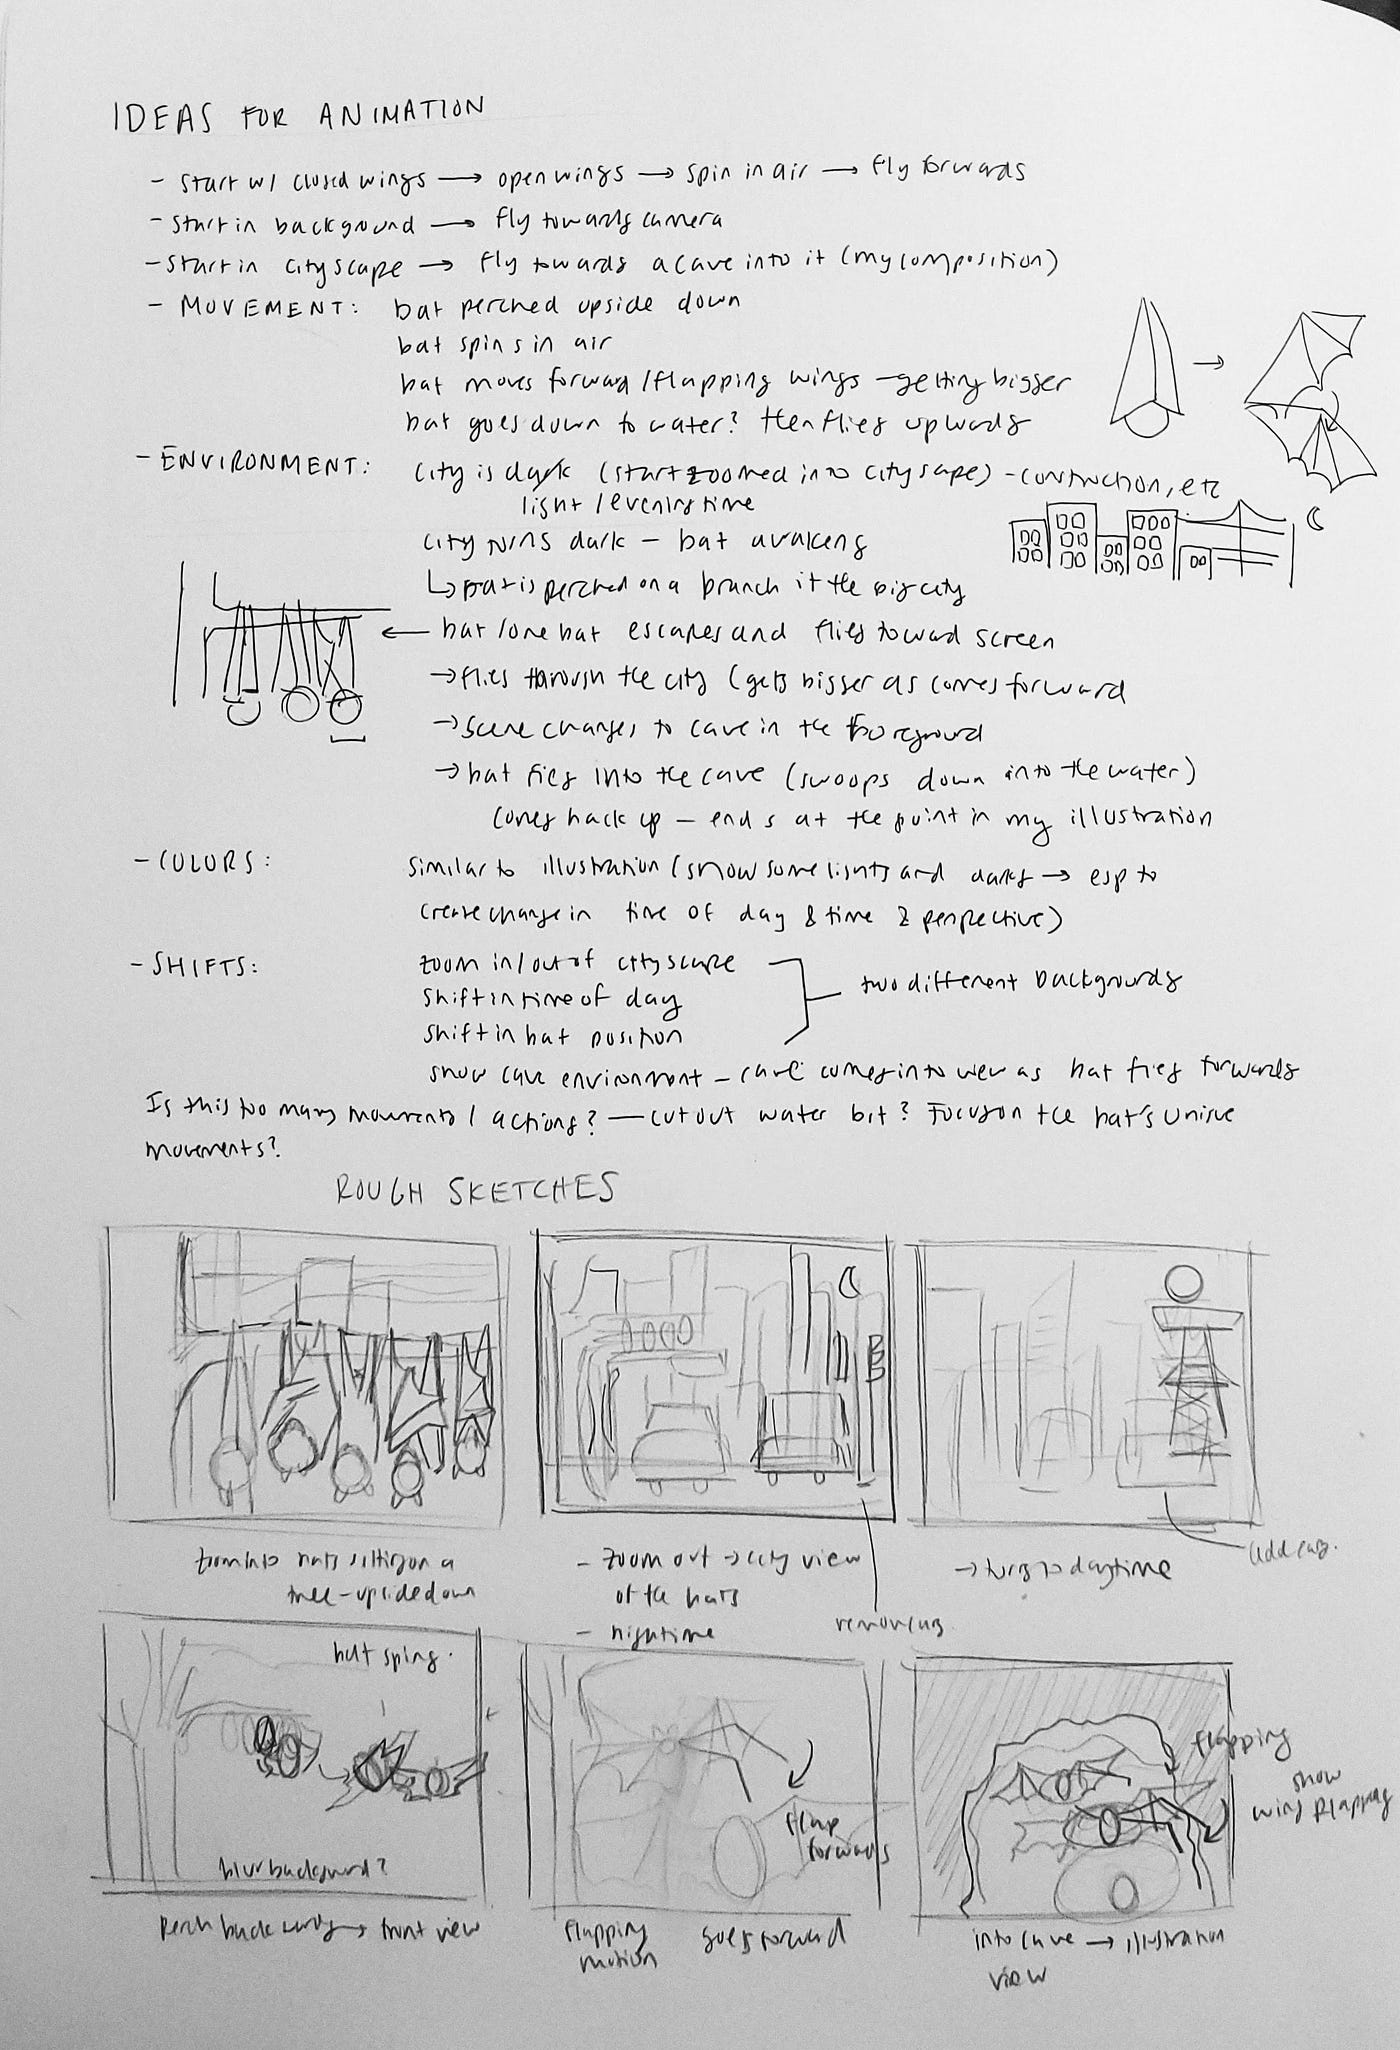 IDEAS FOR ANIMATION
- start w/ closed wings → open wings → spin in air → fly forwards
- start in background → fly towards camera
- start in cityscape → fly towards a cave into it (my composition)
- MOVEMENT: bat perched upside down
bat spins in air
bat moves forward/flapping wings - getting bigger
bat goes down to water? then flies upwards
- ENVIRONMENT: city is dark (start zoomed into citysape) - construction, etc
light/evening time
city turns dark - bat awakens
↳ bat is perched on a branch in the big city
← bat/one bat escapes and flies toward screen
→ flies through the city (gets bigger as comes forward
→ scene changes to cave in the foreground
→ bat flies into the cave (swoops down into the water)
comes back up - ends at the point in my illustration
- COLORS: similar to illustration (show some lights and darks → esp to
create change in time of day & time & perspective)
- SHIFTS: zoom in/out of cityscape
shift in time of day
two different backgrounds
shift in bat position
show cave environment - cave comes into view as bat flies forwards
Is this too many movements/actions? - cut out water bit? Focus on the bat's unique
movements?
ROUGH SKETCHES
zoom into bats sitting on a
tree - upside down
- zoom out → city view
of the bats
- nightime
→ turns to daytime
bat spins.
blur background?
Perch backwards → front view
flap
forwards
flapping
motion
goes forward
flapping
show
wing flapping
into cave → illustration
view